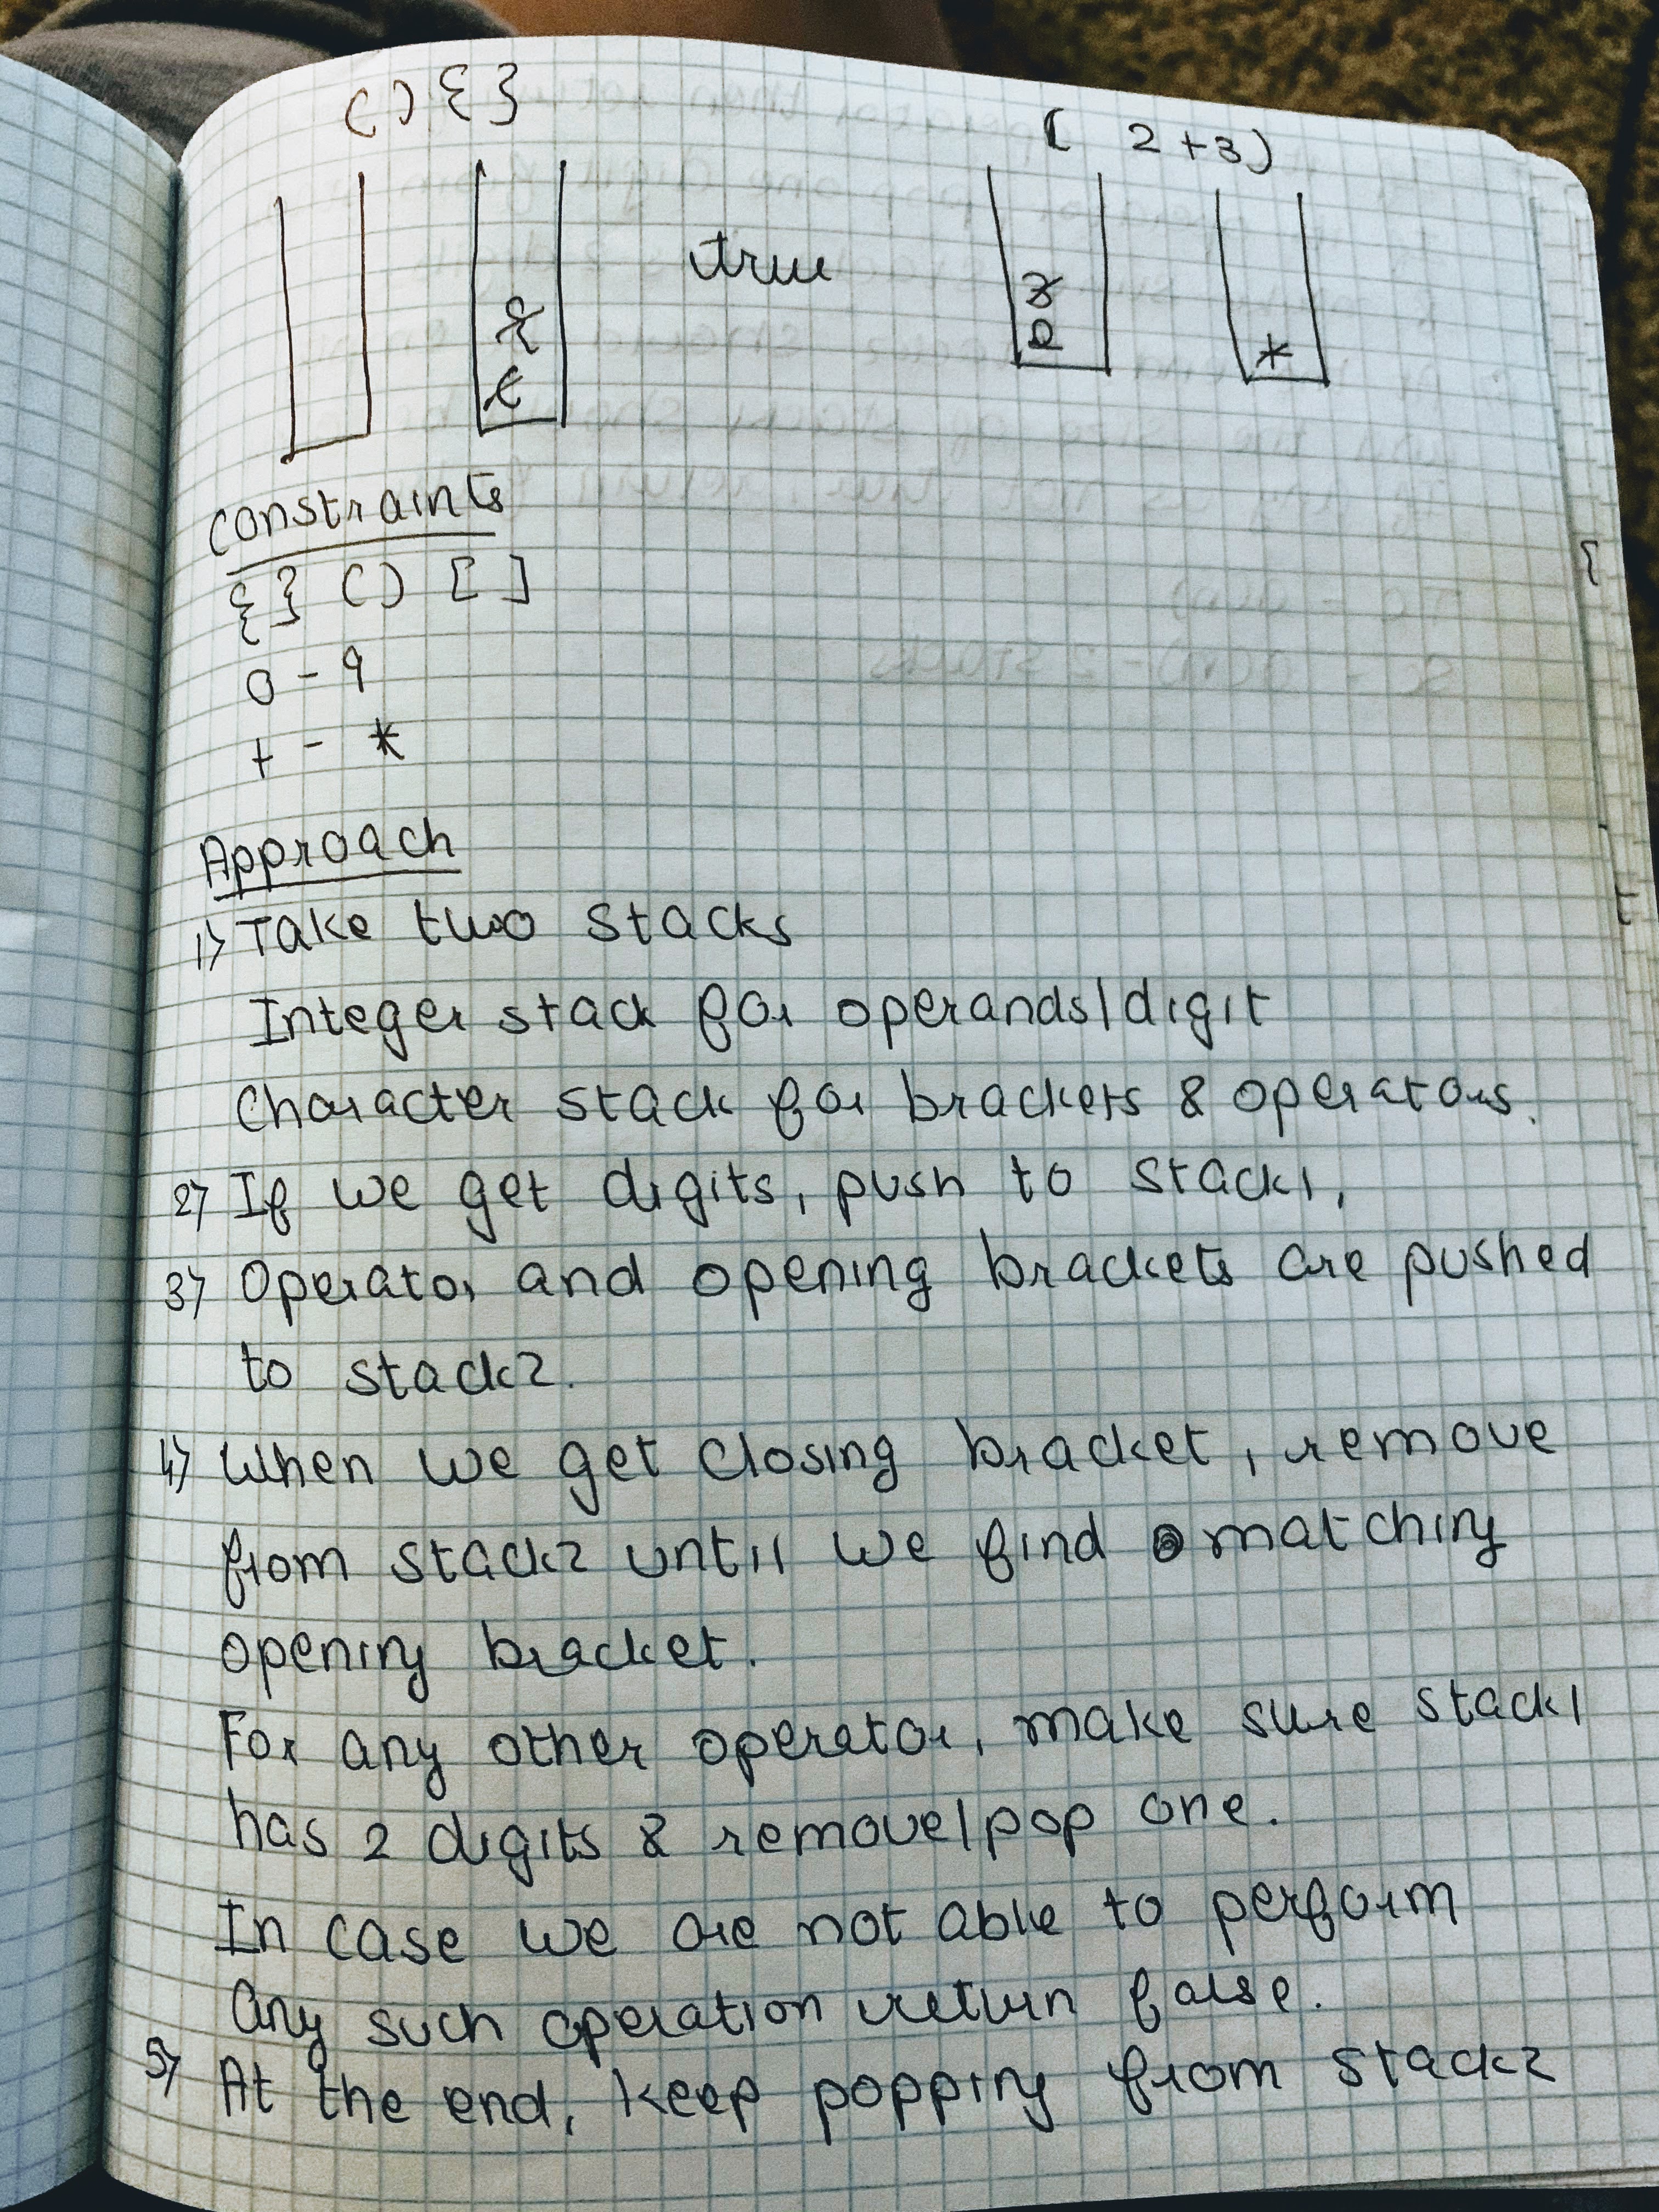 () {}
( 2+3)
true
constraints
{} () [ ]
0 - 9
+ - *
Approach
1) Take two stacks
Integer stack for operands/digit
Character stack for brackets & operators.
2) If we get digits, push to stack1,
3) Operator and opening brackets are pushed
to stack2.
4) When we get closing bracket, remove
from stack2 until we find matching
opening bracket.
For any other operator, make sure stack1
has 2 digits & remove/pop one.
In case we are not able to perform
any such operation return false.
5) At the end, keep popping from stack2